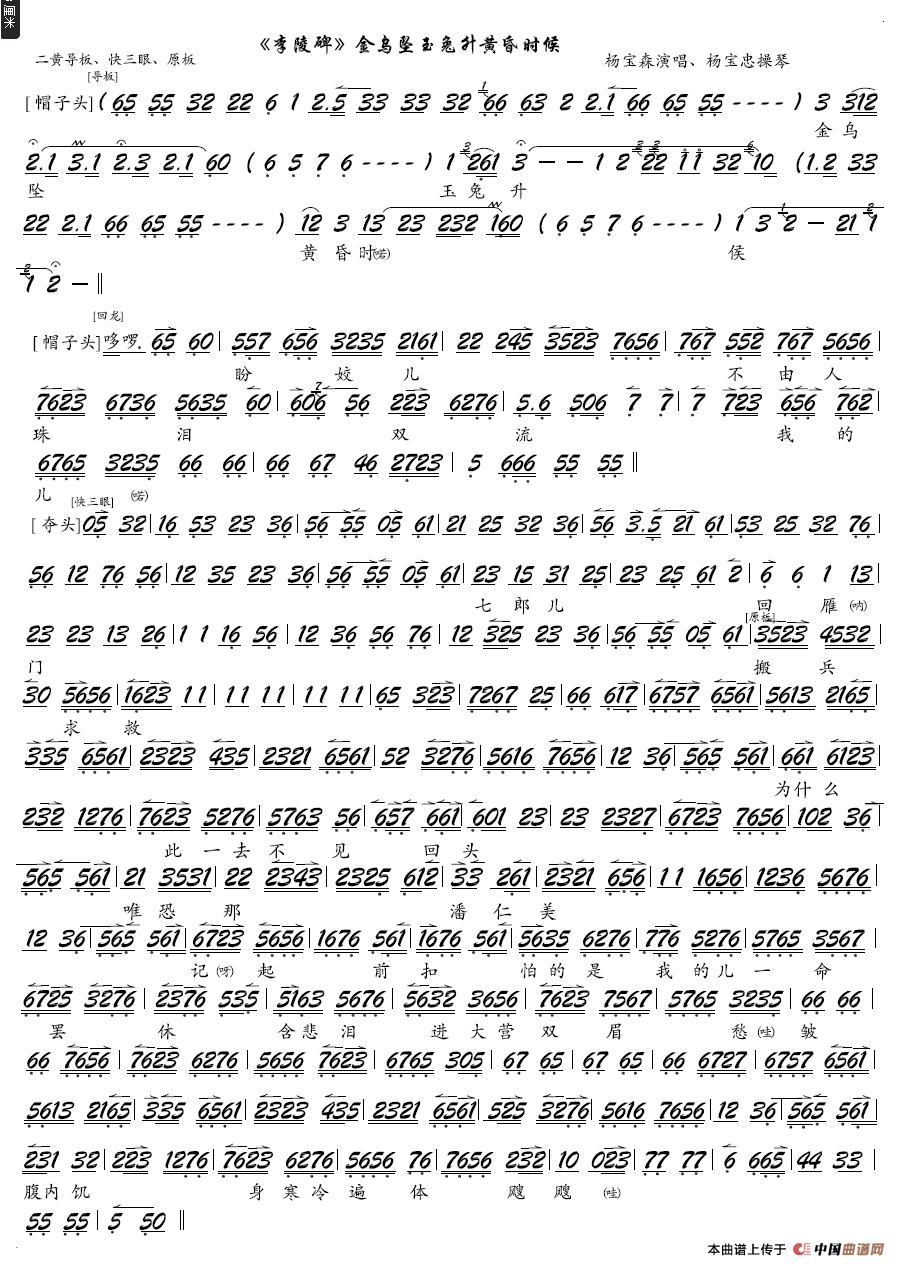 厘米
《李陵碑》金乌坠玉兔升黄昏时候
二黄导板、快三眼、原板
杨宝森演唱、杨宝忠操琴
[导板]
[帽子头] (65 55 32 22 6 1 2.5 33 33 32 66 63 2 2.1 66 65 55 ----) 3 312
金 乌
2.1 3.1 2.3 2.1 60 (6 5 7 6 ----) 1 261 3 — — 1 2 22 11 32 10 (1.2 33
坠 玉 兔 升
22 2.1 66 65 55 ----) 12 3 13 23 232 160 (6 5 7 6 ----) 1 3 2 — 21 1
黄 昏 时(喏) 候
1 2 — ‖
[回龙]
[帽子头] 哆啰. 65 60 | 557 656 3235 2161 | 22 245 3523 7656 | 767 552 767 5656 |
盼 姣 儿 不 由 人
7623 6736 5635 60 | 606 56 223 6276 | 5.6 506 7 7 | 7 723 656 762 |
珠 泪 双 流 我 的
6765 3235 66 66 | 66 67 46 2723 | 5 666 55 55 ‖
儿 (喏)
[快三眼]
[夺头] 05 32 | 16 53 23 36 | 56 55 05 61 | 21 25 32 36 | 56 3.5 21 61 | 53 25 32 76 |
56 12 76 56 | 12 35 23 36 | 56 55 05 61 | 23 15 31 25 | 23 25 61 2 | 6 6 1 13 |
七 郎 儿 回 雁 (呐)
[原板]
23 23 13 26 | 1 1 16 56 | 12 36 56 76 | 12 325 23 36 | 56 55 05 61 | 3523 4532 |
门 搬 兵
30 5656 | 1623 11 | 11 11 | 11 11 | 65 323 | 7267 25 | 66 617 | 6757 6561 | 5613 2165 |
求 救
335 6561 | 2323 435 | 2321 6561 | 52 3276 | 5616 7656 | 12 36 | 565 561 | 661 6123 |
为什 么
232 1276 | 7623 5276 | 5763 56 | 657 661 | 601 23 | 23 2327 | 6723 7656 | 102 36 |
此 一 去 不 见 回 头
565 561 | 21 3531 | 22 2343 | 2325 612 | 33 261 | 2321 656 | 11 1656 | 1236 5676 |
唯 恐 那 潘 仁 美
12 36 | 565 561 | 6723 5656 | 1676 561 | 1676 561 | 5635 6276 | 776 5276 | 5765 3567 |
记 (呀) 起 前 扣 怕 的 是 我 的 儿 一 命
6725 3276 | 2376 535 | 5163 5676 | 5632 3656 | 7623 7567 | 5765 3235 | 66 66 |
罢 休 含 悲 泪 进 大 营 双 眉 愁 (哇) 皱
66 7656 | 7623 6276 | 5656 7623 | 6765 305 | 67 65 | 67 65 | 66 6727 | 6757 6561 |
5613 2165 | 335 6561 | 2323 435 | 2321 6561 | 525 3276 | 5616 7656 | 12 36 | 565 561 |
231 32 | 223 1276 | 7623 6276 | 5656 76 | 7656 232 | 10 023 | 77 77 | 6 665 | 44 33 |
腹 内 饥 身 寒 冷 遍 体 飕 飕 (哇)
55 55 | 5 50 ‖
本曲谱上传于 中国曲谱网